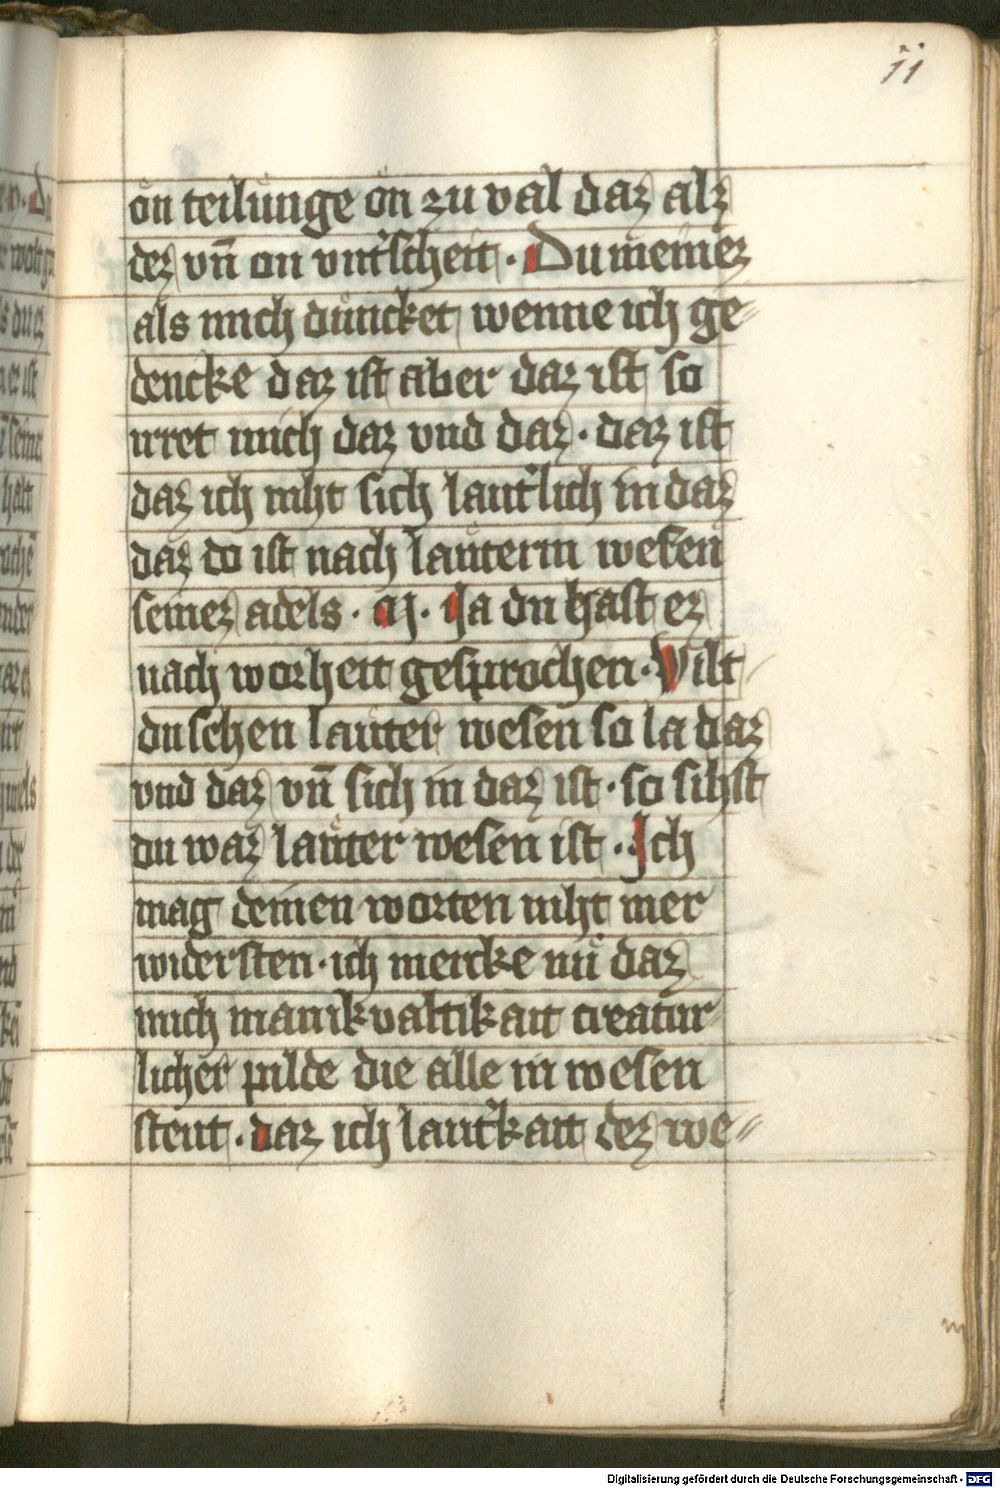 11
on teilunge on zu val daz alz
dez vn̄ on vnt̓scheit · Du meinez
als mich duncket wenne ich ge⸗
dencke daz ist aber daz ist so
irret mich daz vnd daz · daz ist
daz ich niht sich laut̓lich in daz
daz do ist nach lauterm wesen
seinez adels · M · Ja du hast ez
nach worheit gesprochen · Wilt
du sehen lauter wesen so la daz
vnd daz vn̄ sich in daz ist · so sihst
du waz lauter wesen ist · Ich
mag deinen worten niht mer
widersten · ich mercke nu daz
mich manikvaltikait creatur
licher pilde die alle in wesen
stent · daz ich laut̓kait dez we⸗
Digitalisierung gefördert durch die Deutsche Forschungsgemeinschaft - DFG